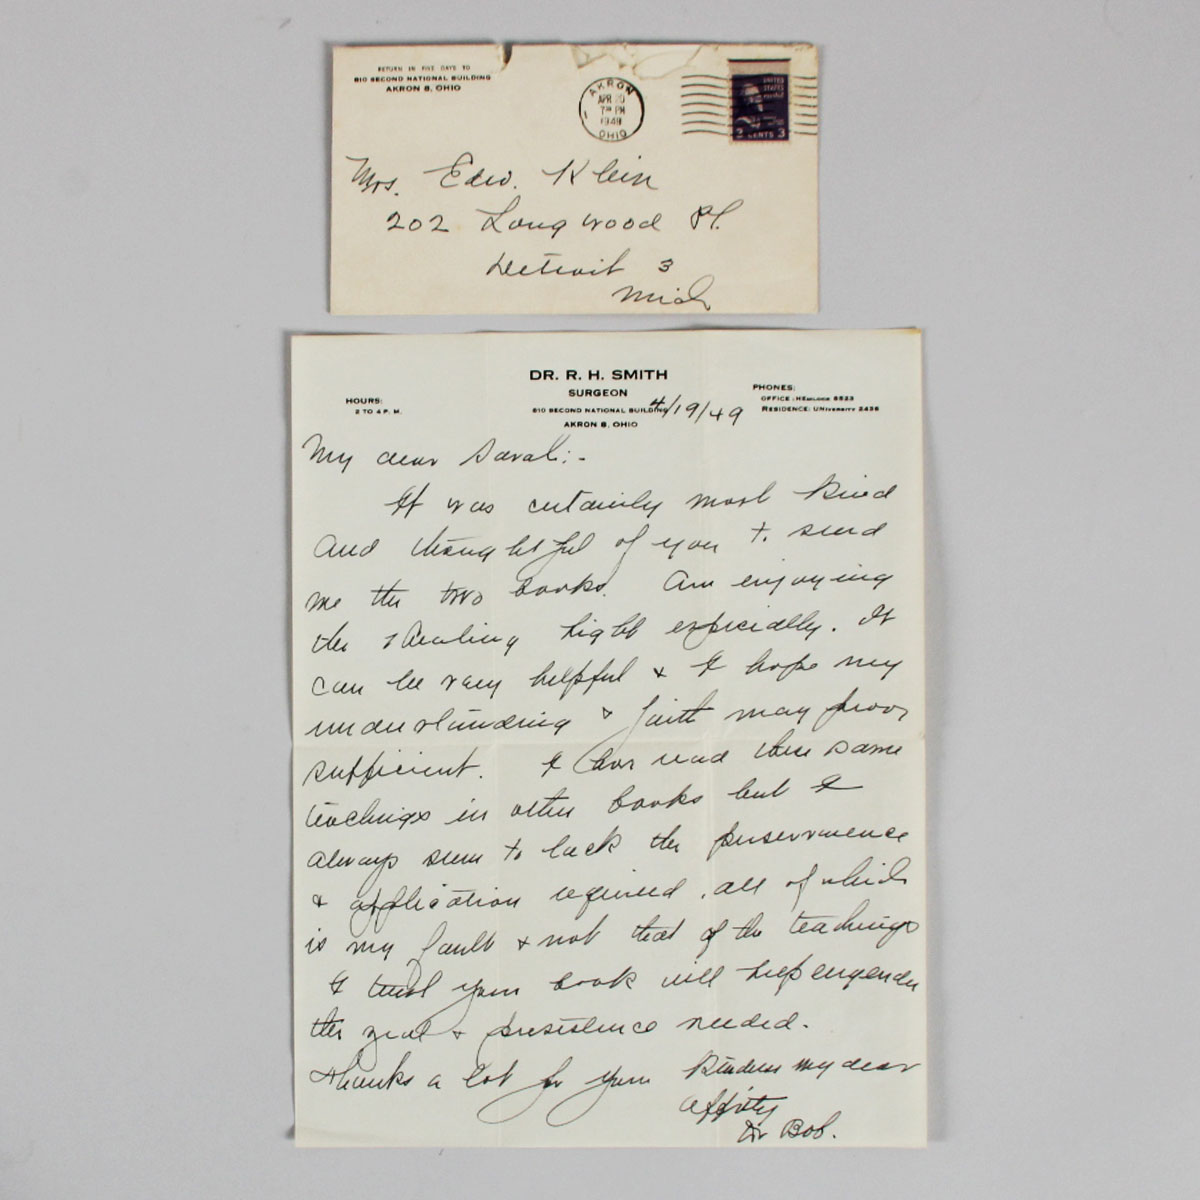 RETURN IN FIVE DAYS TO
810 SECOND NATIONAL BUILDING
AKRON 8, OHIO
AKRON
APR 20
7 PM
1949
OHIO
1
UNITED
STATES
3 CENTS 3
Mrs. Edw. Klein
202 Longwood Pl.
Detroit 3
Mich
DR. R. H. SMITH
SURGEON
810 SECOND NATIONAL BUILDING
AKRON 8, OHIO
HOURS:
2 TO 4 P. M.
PHONES:
OFFICE: HEMLOCK 8523
RESIDENCE: UNIVERSITY 2436
4/19/49
My dear Sarah:-
It was certainly most kind
and thoughtful of you to send
me the two books. Am enjoying
the Healing Light especially. It
can be very helpful & I hope my
understanding & faith may prove
sufficient. I have read these same
teachings in other books but I
always seem to lack the perserverence
& application required, all of which
is my fault & not that of the teachings
I trust your book will help engender
the zeal & persistence needed.
Thanks a lot for your kindness my dear
Affity
Dr Bob.